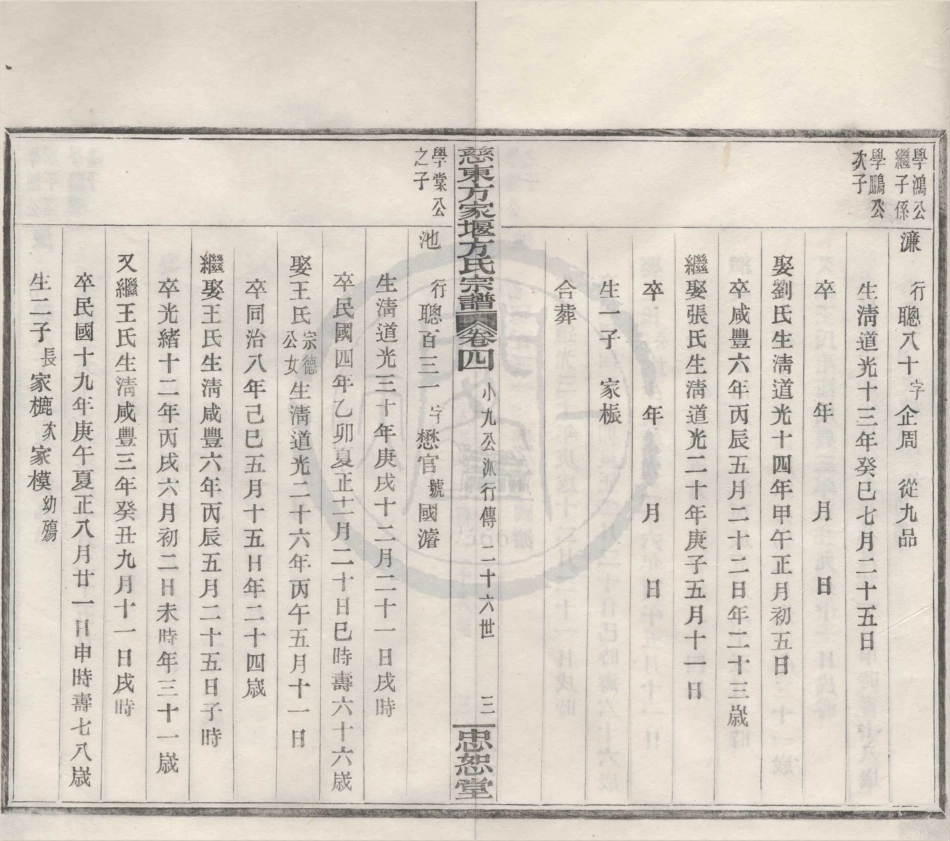 學鴻公
繼子係
學鵬公
次子
濂
行聰八十字企周 從九品
生淸道光十三年癸巳七月二十五日
卒 年 月 日
娶劉氏生淸道光十四年甲午正月初五日
卒咸豐六年丙辰五月二十二日年二十三歲
繼娶張氏生淸道光二十年庚子五月十一日
卒 年 月 日
生一子 家桭
合葬
慈東方家堰方氏宗譜 卷四 小九公派行傳 二十六世 三 忠恕堂
學棠公
之子
池
行聰百三一字懋官號國濬
生淸道光三十年庚戌十二月二十一日戌時
卒民國四年乙卯夏正十一月二十日巳時壽六十六歲
娶王氏宗德公女生淸道光二十六年丙午五月十一日
卒同治八年己巳五月十五日年二十四歲
繼娶王氏生淸咸豐六年丙辰五月二十五日子時
卒光緒十二年丙戌六月初二日未時年三十一歲
又繼王氏生淸咸豐三年癸丑九月十一日戌時
卒民國十九年庚午夏正八月廿一日申時壽七八歲
生二子長家樵次家模幼殤